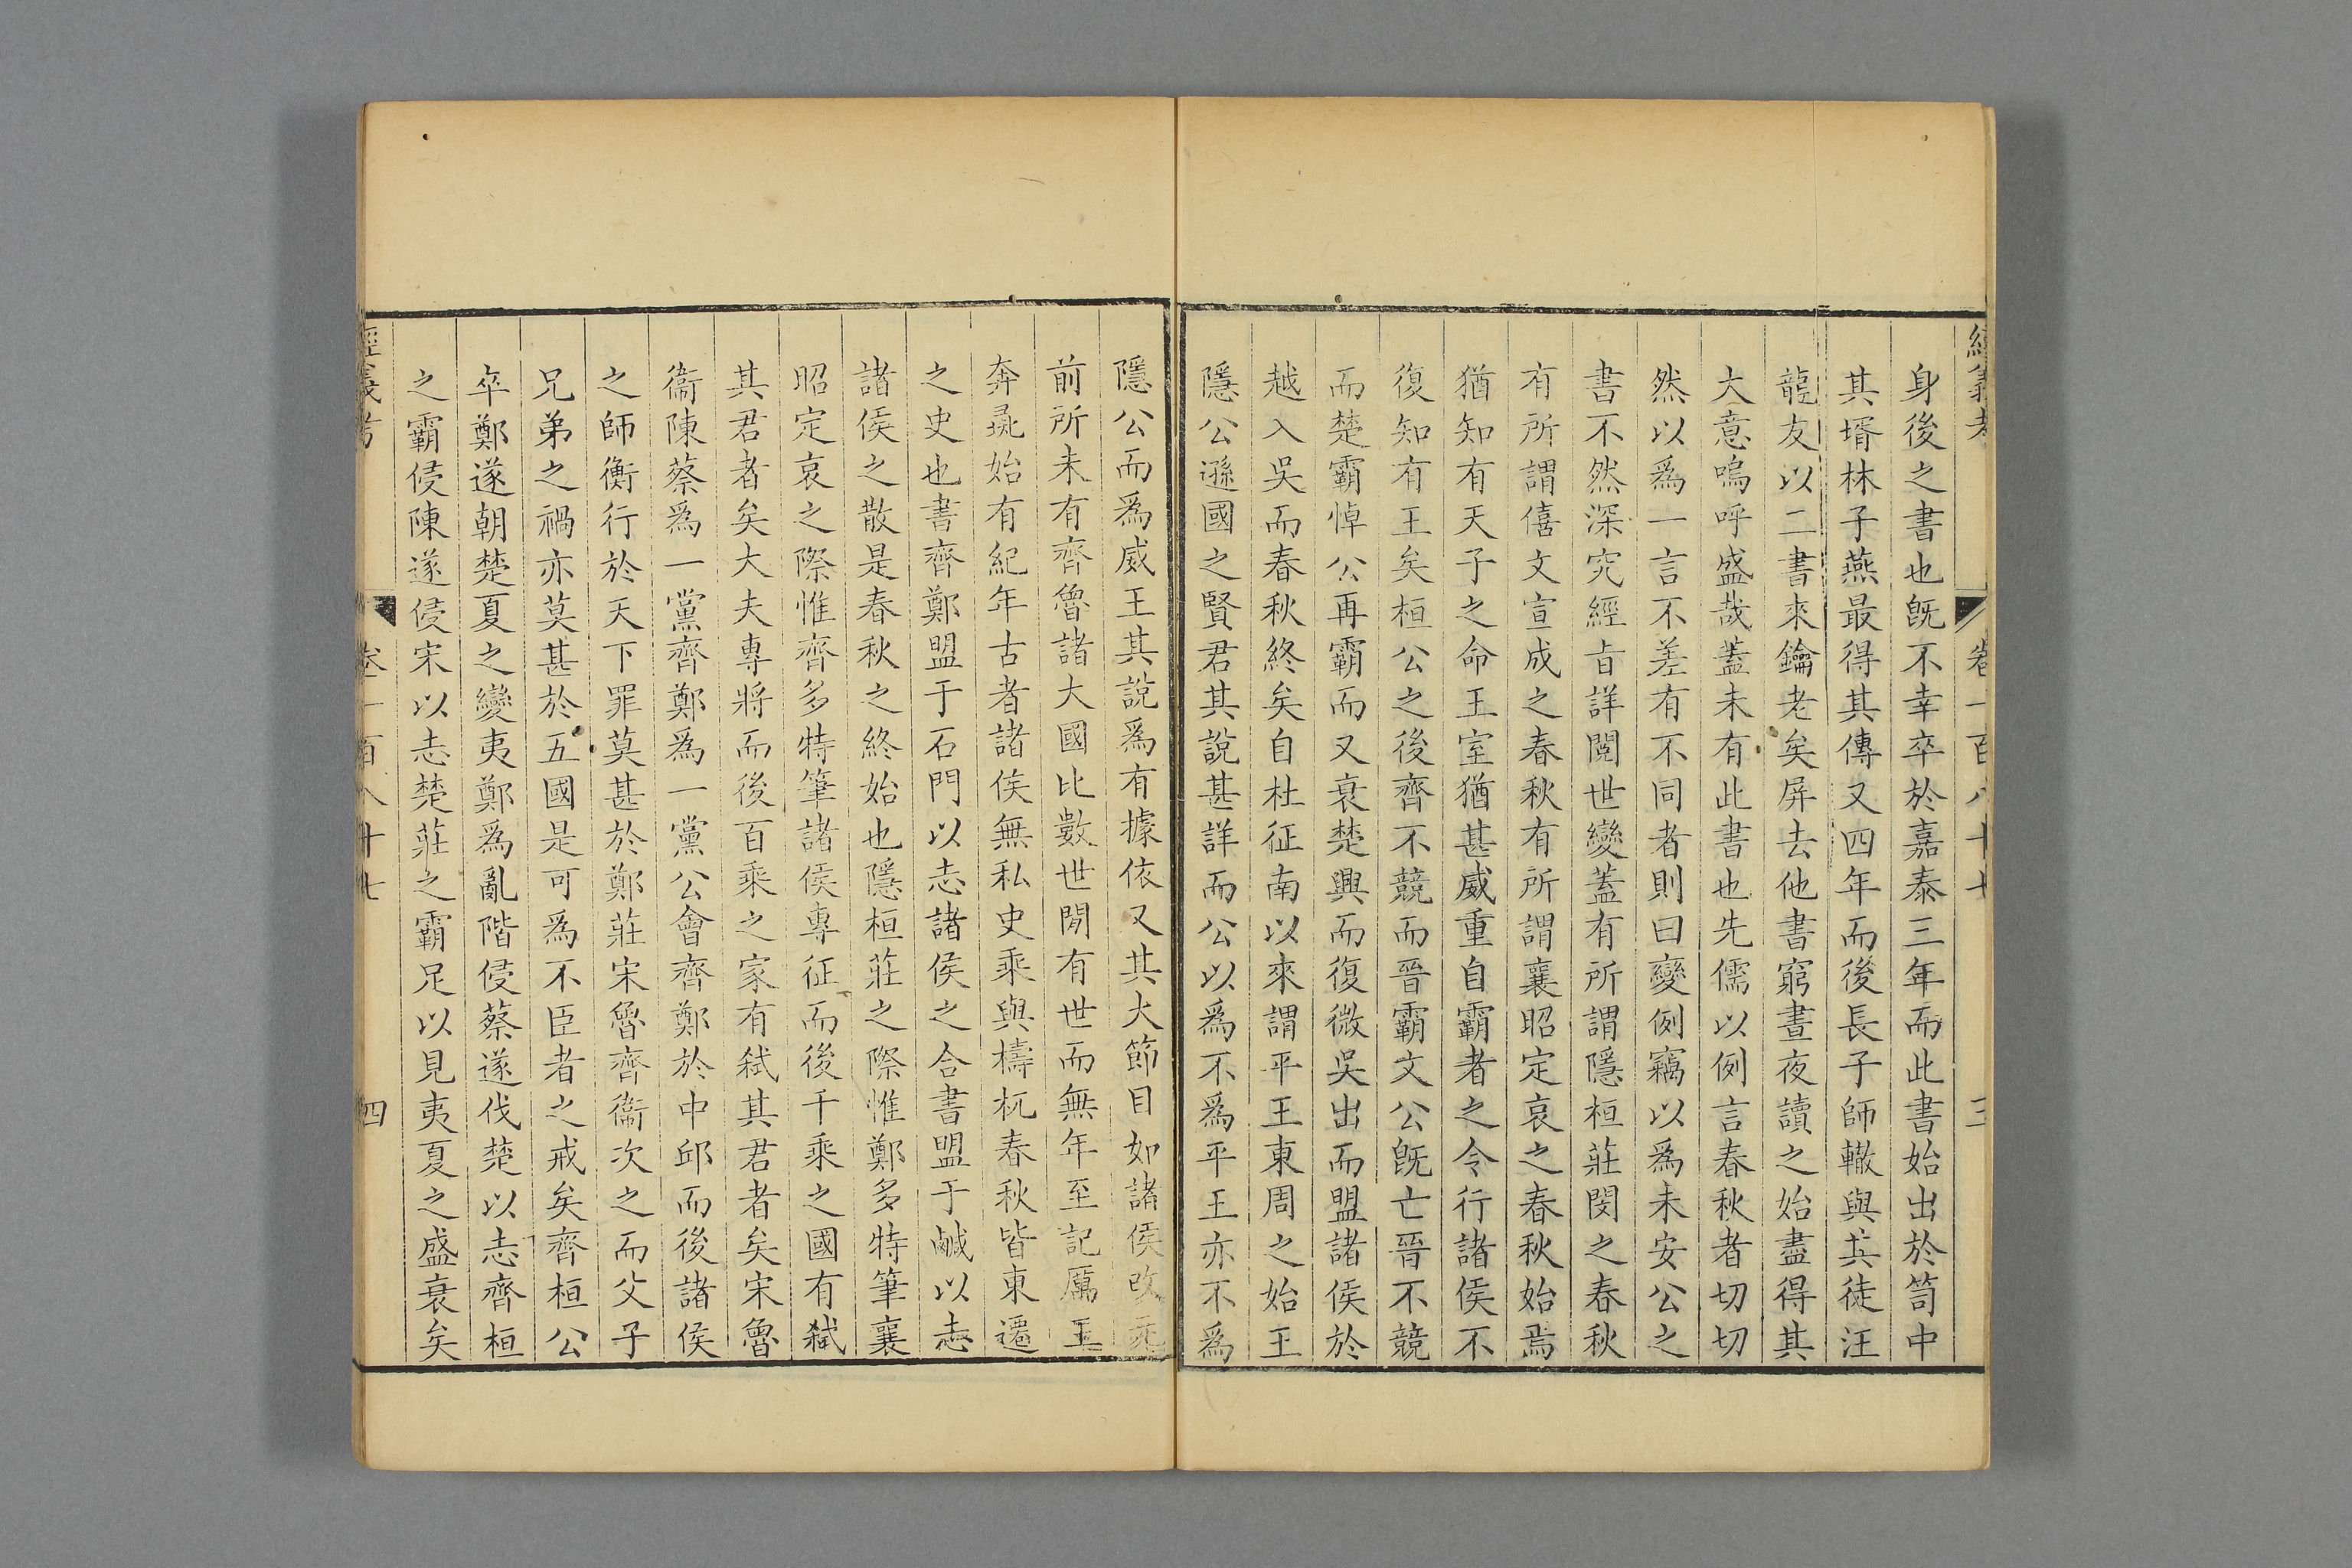 經義考 卷一百八十七 三
身後之書也旣不幸卒於嘉泰三年而此書始出於笥中
其壻林子燕最得其傳又四年而後長子師轍與其徒汪
龍友以二書來鑰老矣屏去他書窮晝夜讀之始盡得其
大意嗚呼盛哉蓋未有此書也先儒以例言春秋者切切
然以爲一言不差有不同者則曰變例竊以爲未安公之
書不然深究經旨詳閱世變蓋有所謂隱桓莊閔之春秋
有所謂僖文宣成之春秋有所謂襄昭定哀之春秋始焉
猶知有天子之命王室猶甚威重自霸者之令行諸侯不
復知有王矣桓公之後齊不競而晉霸文公旣亡晉不競
而楚霸悼公再霸而又衰楚興而復微吳出而盟諸侯於
越入吳而春秋終矣自杜征南以來謂平王東周之始王
隱公遜國之賢君其說甚詳而公以爲不爲平王亦不爲
隱公而爲威王其說爲有據依又其大節目如諸侯改元
前所未有齊魯諸大國比數世閒有世而無年至記厲王
奔彘始有紀年古者諸侯無私史乘與檮杌春秋皆東遷
之史也書齊鄭盟于石門以志諸侯之合書盟于鹹以志
諸侯之散是春秋之終始也隱桓莊之際惟鄭多特筆襄
昭定哀之際惟齊多特筆諸侯專征而後千乘之國有弒
其君者矣大夫專將而後百乘之家有弒其君者矣宋魯
衞陳蔡爲一黨齊鄭爲一黨公會齊鄭於中邱而後諸侯
之師衡行於天下罪莫甚於鄭莊宋魯齊衞次之而父子
兄弟之禍亦莫甚於五國是可爲不臣者之戒矣齊桓公
卒鄭遂朝楚夏之變夷鄭爲亂階侵蔡遂伐楚以志齊桓
之霸侵陳遂侵宋以志楚莊之霸足以見夷夏之盛衰矣
經義考 卷一百八十七 四